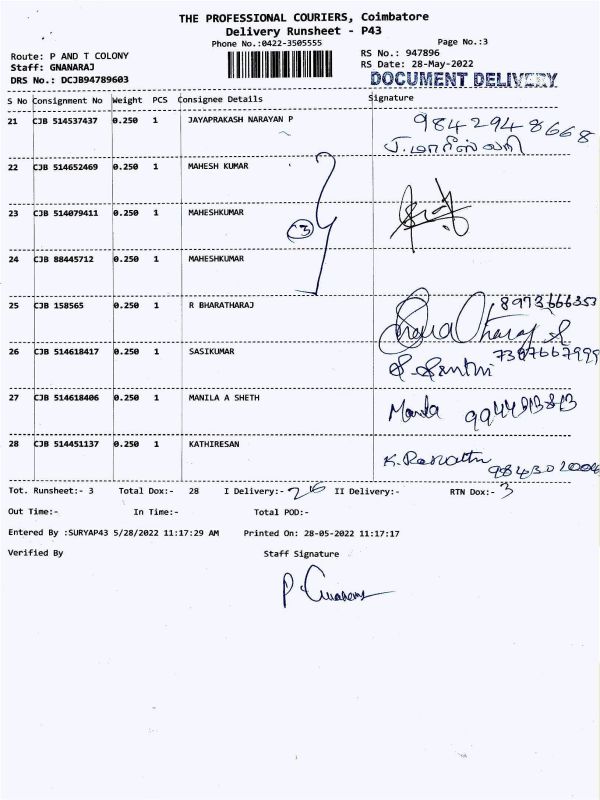 THE PROFESSIONAL COURIERS, Coimbatore
Delivery Runsheet - P43
Phone No.:0422-3505555
Page No.:3
Route: P AND T COLONY
RS No.: 947896
Staff: GNANARAJ
RS Date: 28-May-2022
DRS No.: DCJB94789603
DOCUMENT DELIVERY
S No Consignment No Weight PCS Consignee Details Signature
21 CJB 514537437 0.250 1 JAYAPRAKASH NARAYAN P 9842948668
22 CJB 514652469 0.250 1 MAHESH KUMAR
23 CJB 514079411 0.250 1 MAHESHKUMAR 3
24 CJB 88445712 0.250 1 MAHESHKUMAR
25 CJB 158565 1 R BHARATHARAJ 8973666353
26 CJB 514618417 0.250 1 SASIKUMAR 7397667999
S. Santhi
27 CJB 514618406 0.250 1 MANILA A SHETH Manila
28 CJB 514451137 0.250 1 KATHIRESAN
Tot. Runsheet:- 3 Total Dox:- 28 I Delivery:- 26 II Delivery:- RTN Dox:- 3
Out Time:- In Time:- Total POD:-
Entered By :SURYAP43 5/28/2022 11:17:29 AM Printed On: 28-05-2022 11:17:17
Verified By Staff Signature